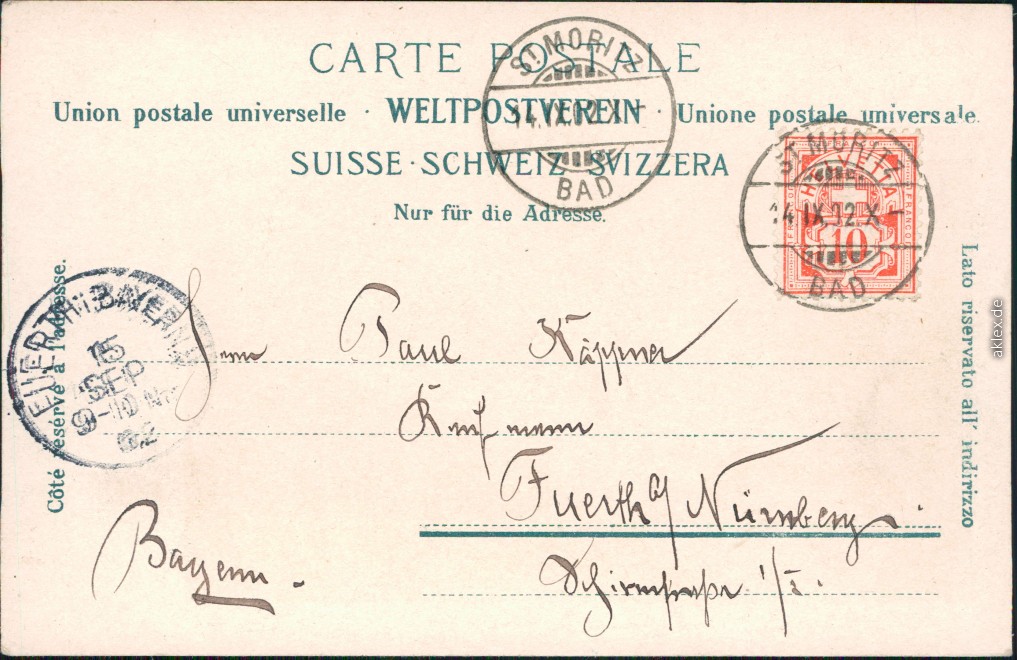 CARTE POSTALE
Union postale universelle · WELTPOSTVEREIN · Unione postale universale
SUISSE · SCHWEIZ · SVIZZERA
Nur für die Adresse.
ST. MORITZ
14.IX.02.X-
BAD
ST. MORITZ
14.IX.02.X-
BAD
HELVETIA
FRANCO
10
Côté réservé à l'adresse.
Lato riservato all' indirizzo
BAYERN
15
SEP
9-10
02
Herrn Paul Käppner
Kaufmann
Fuerth a/ Nürnberg.
Bayern.
aklex.de